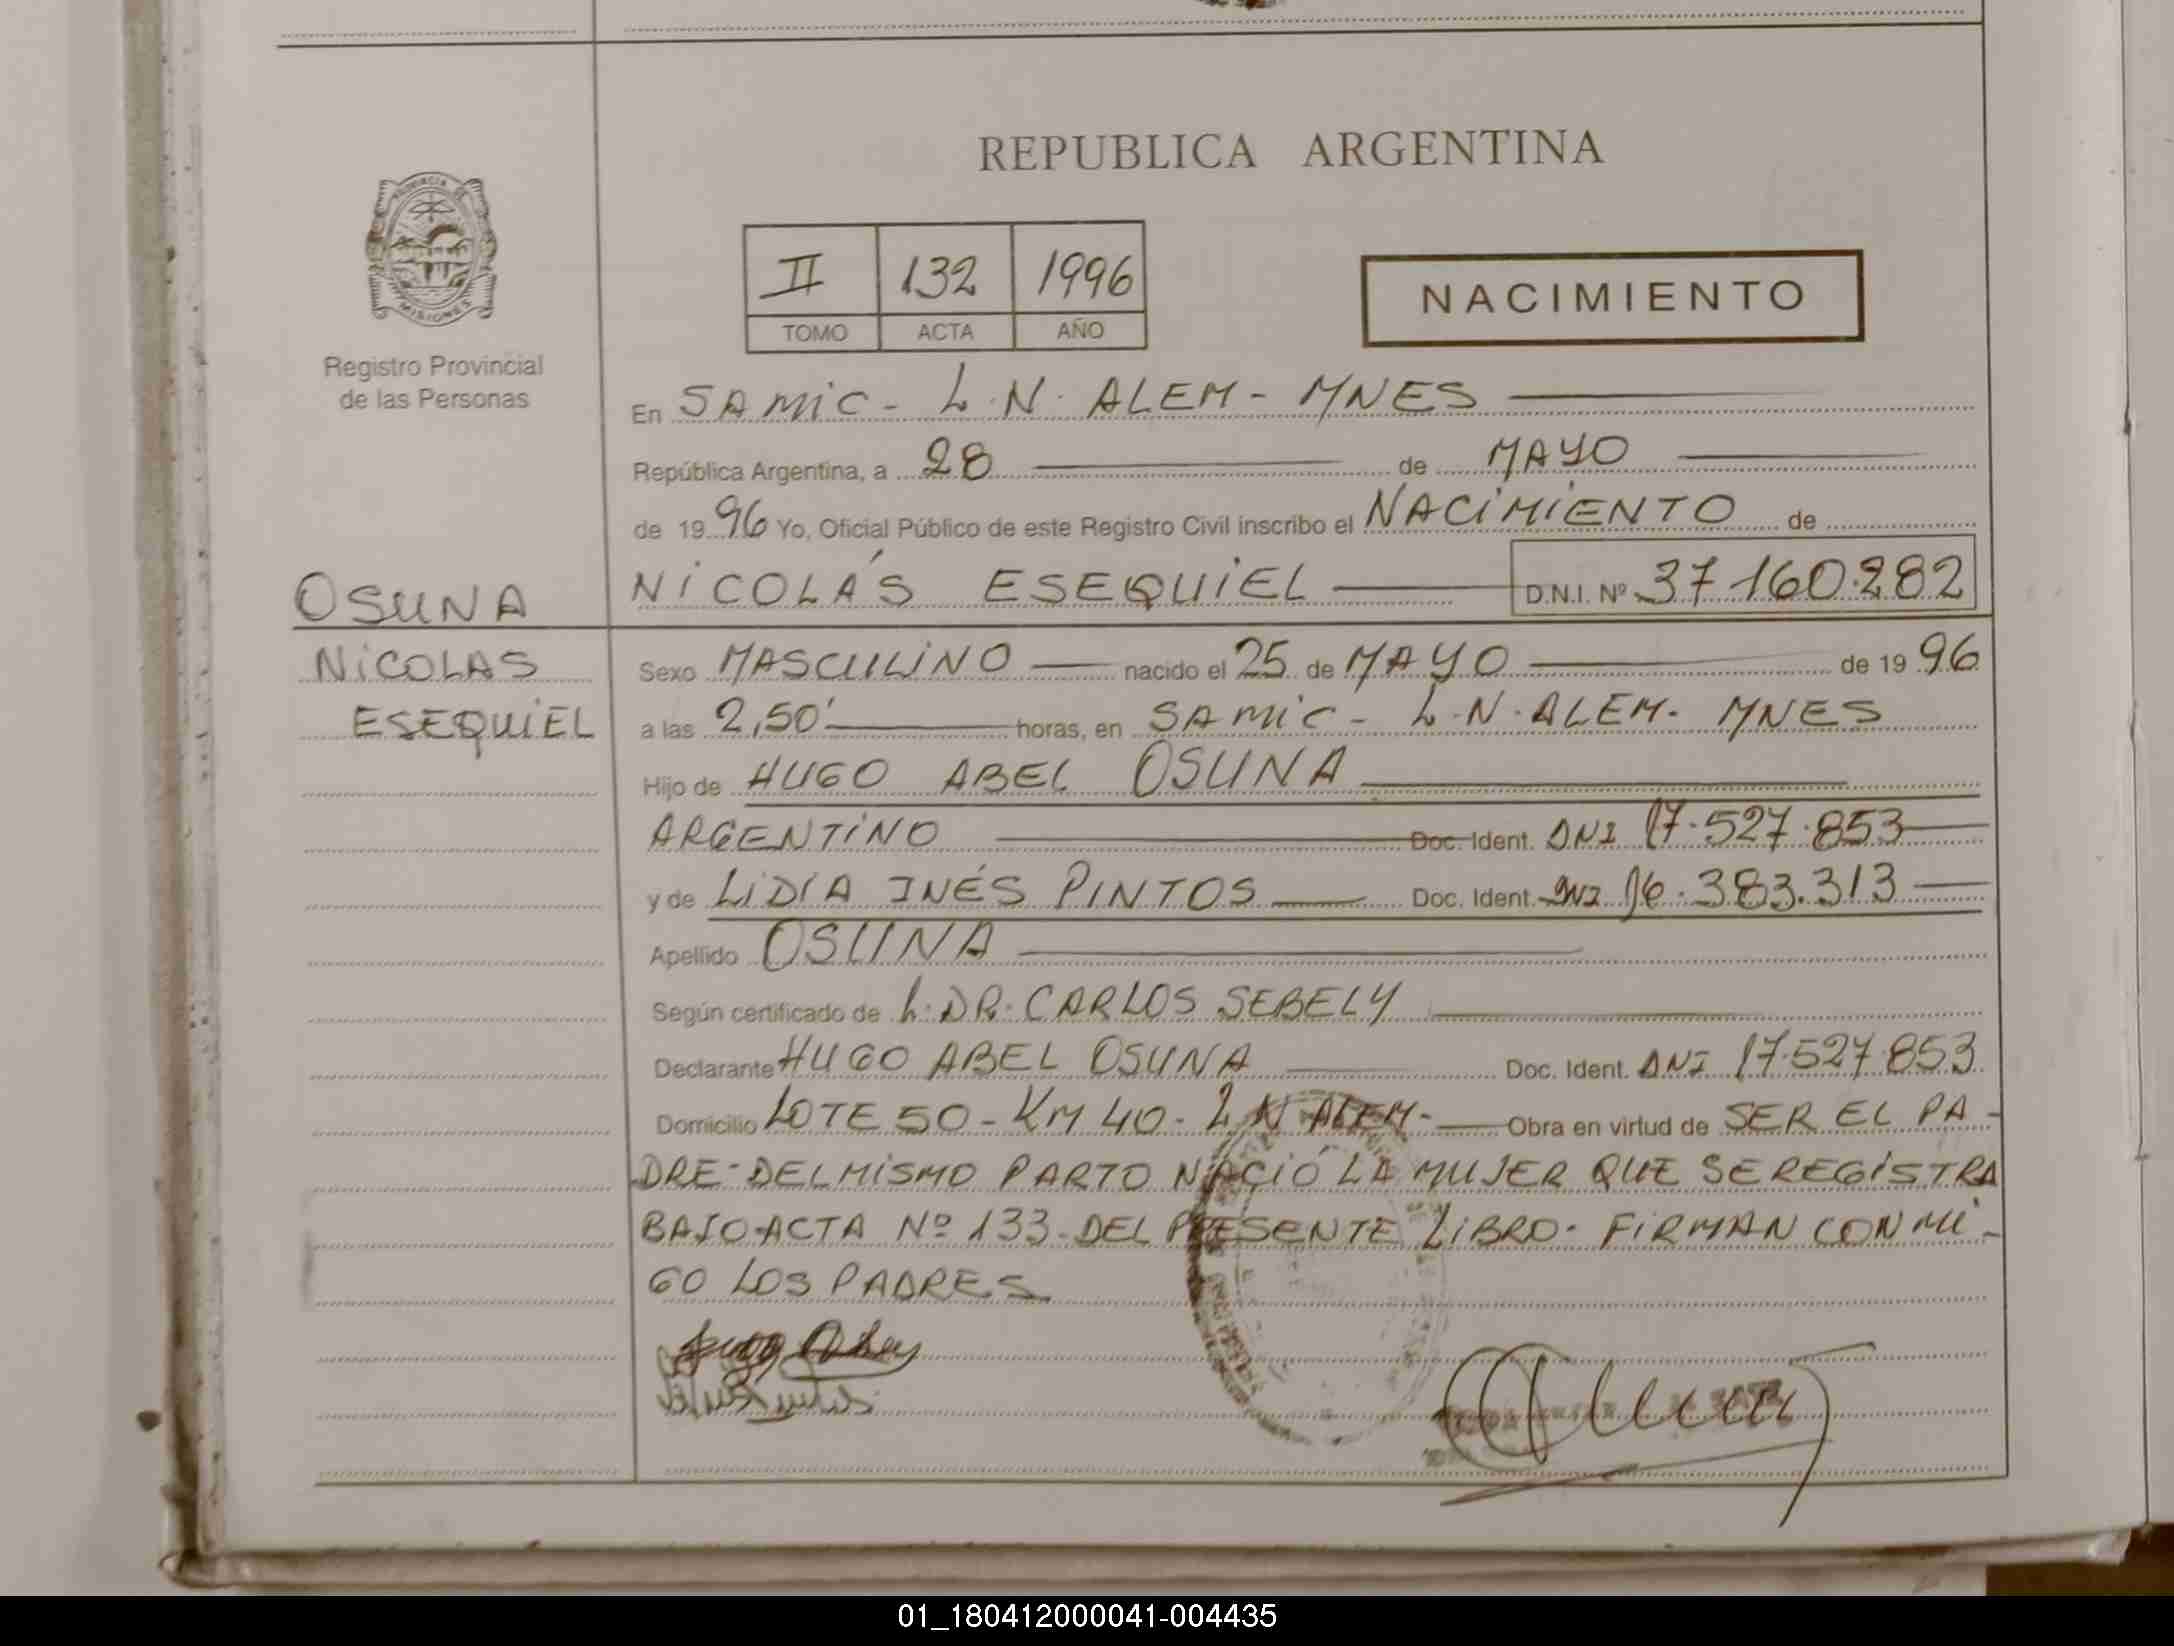 REPUBLICA ARGENTINA
PROVINCIA DE
MISIONES
Registro Provincial
de las Personas
II 132 1996
TOMO ACTA AÑO
NACIMIENTO
En SAMIC - L.N. ALEM - MNES
República Argentina, a 28 de MAYO
de 1996 Yo, Oficial Público de este Registro Civil inscribo el NACIMIENTO de
OSUNA
NICOLÁS ESEQUIEL D.N.I. Nº 37160.282
NICOLAS
ESEQUIEL
Sexo MASCULINO nacido el 25 de MAYO de 1996
a las 2,50' horas, en SAMIC - L.N. ALEM - MNES
Hijo de HUGO ABEL OSUNA
ARGENTINO Doc. Ident. DNI 17.527.853
y de LIDIA INÉS PINTOS Doc. Ident. DNI 16.383.313
Apellido OSUNA
Según certificado de L. DR. CARLOS SEBELY
Declarante HUGO ABEL OSUNA Doc. Ident. DNI 17.527.853
Domicilio LOTE 50 - KM 40 - L N ALEM - Obra en virtud de SER EL PA-
DRE - DEL MISMO PARTO NACIÓ LA MUJER QUE SE REGISTRA
BAJO ACTA Nº 133 - DEL PRESENTE LIBRO - FIRMAN CONMI-
GO LOS PADRES
01_180412000041-004435